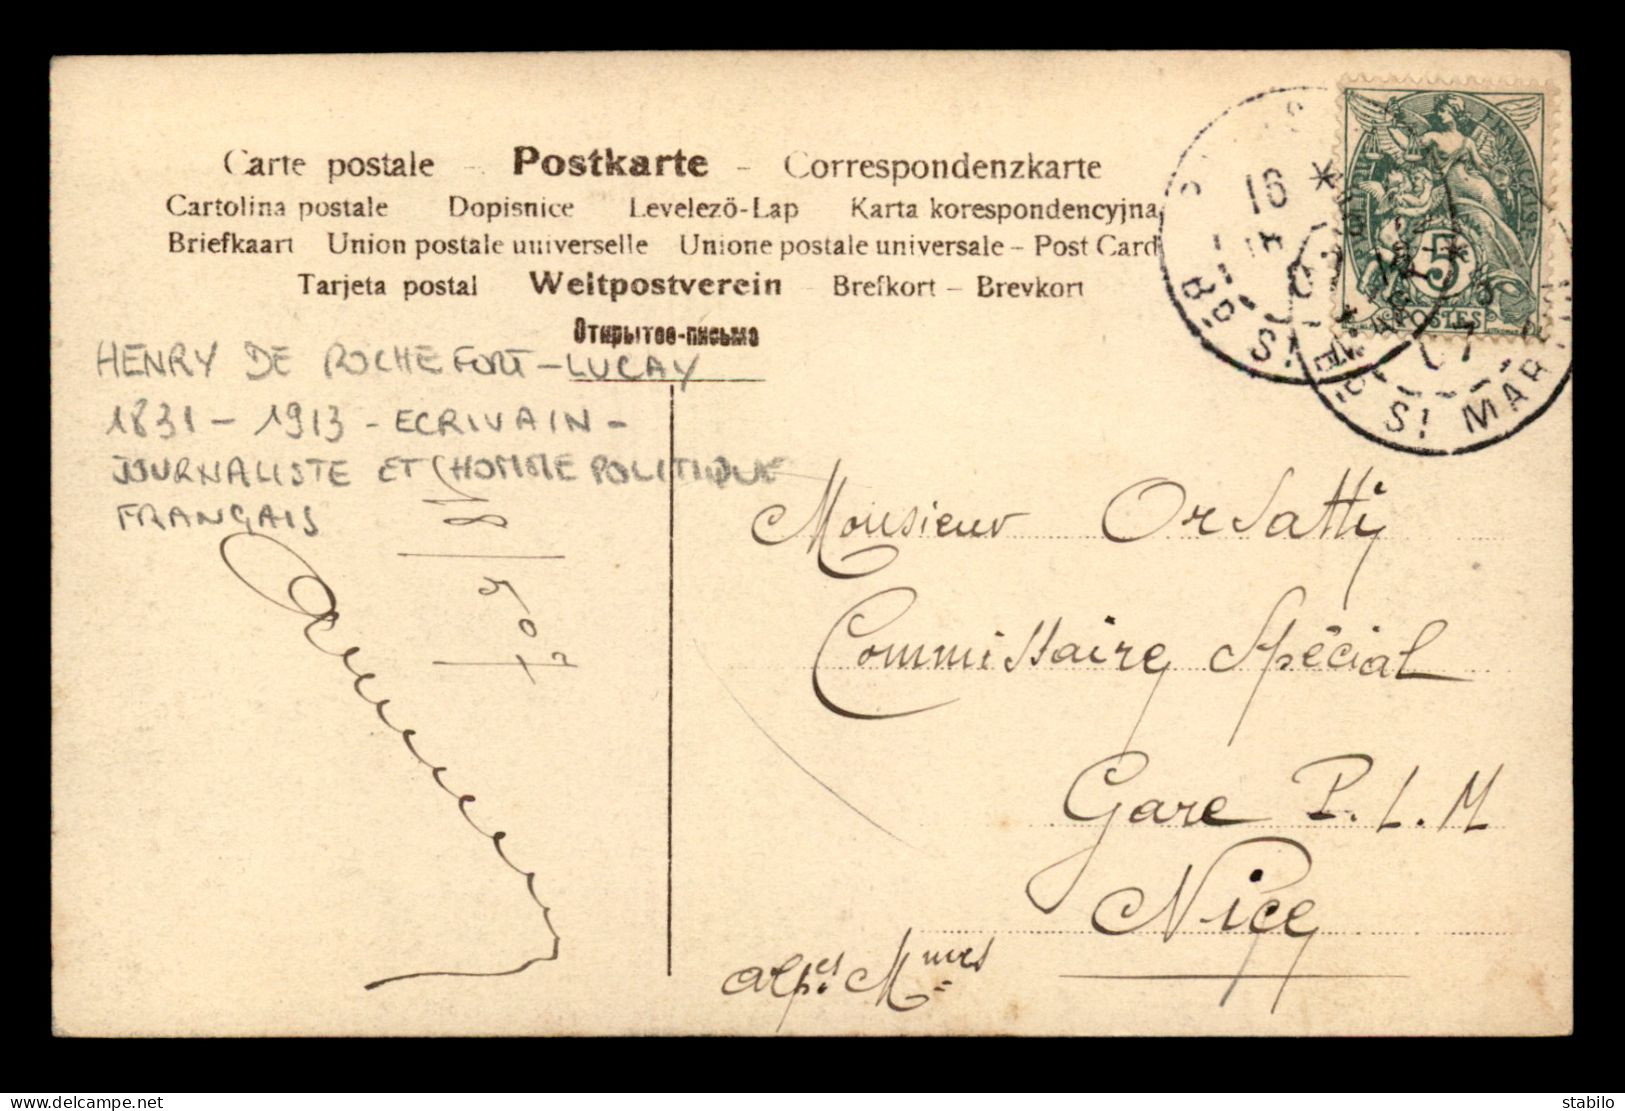 Carte postale – Postkarte – Correspondenzkarte
Cartolina postale Dopisnice Levelezö-Lap Karta korespondencyjna
Briefkaart Union postale universelle Unione postale universale – Post Card
Tarjeta postal Weltpostverein Brefkort – Brevkort
Открытое-письмо
HENRY DE ROCHEFORT-LUCAY
1831 - 1913 - ECRIVAIN -
JOURNALISTE ET HOMME POLITIQUE
FRANÇAIS
18
5
07
Monsieur Orsatty
Commissaire Spécial
Gare P.L.M
Nice
Alpes Mmes
16 *
BD ST
BD ST MARTIN
07
5
POSTES
FRANÇAISE
delcampe.net
stabilo